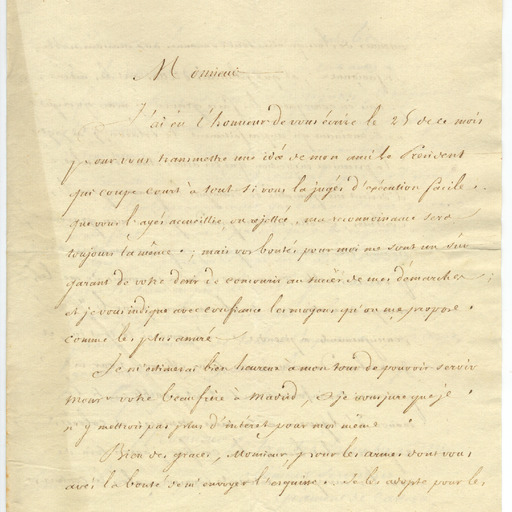 Monsieur
J'ai eu l'honneur de vous écrire le 25 de ce mois
pour vous transmettre une idée de mon ami le Président
qui coupe court à tout si vous la jugés d'exécution facile.
que vous l'ayés accueillie, ou rejettée, ma reconnoissance sera
toujours la même; mais vos bontés pour moi me sont un sûr
garant de votre desir de concourir au succès de mes démarches;
et je vous indique avec confiance les moyens qu'on me propose
comme les plus assurés
Je m'estimerai bien heureux à mon tour de pouvoir servir
Monsr votre beaufrère à Madrid, et je vous jure que je
n'y mettrois pas plus d'intéret pour moi même
Bien des graces, Monsieur, pour les armes dont vous
avés la bonté de m'envoyer l'esquisse. Je les adopte pour les